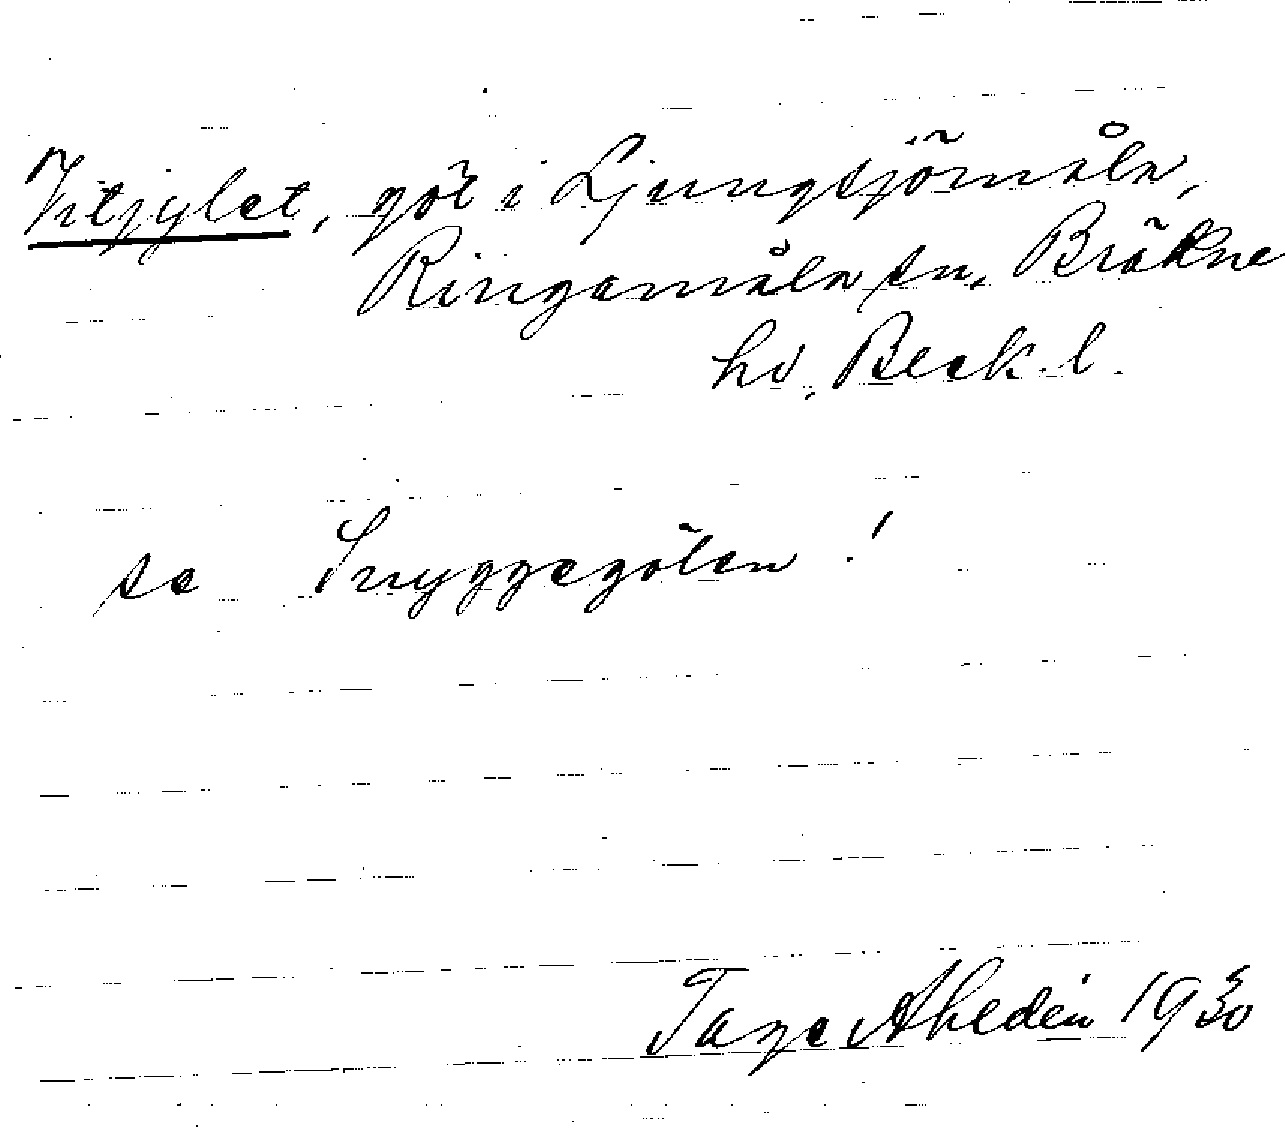 Vitjylet, göl i Ljungsjömåla,
Ringamåla sn, Bräkne
hd, Blek. l.
se Snyggegölen!
Tage Ahldén 1930